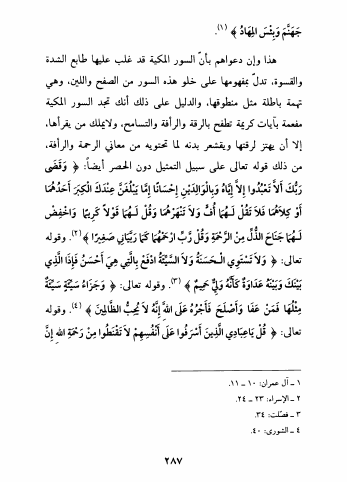 جَهَنَّمَ وَبِئْسَ الْمِهَادُ ﴾ (١).
هذا وإن دعواهم بأنّ السور المكية قد غلب عليها طابع الشدة
والقسوة، تدلّ بمفهومها على خلو هذه السور من الصفح واللين، وهي
تهمة باطلة مثل منطوقها، والدليل على ذلك أنك تجد السور المكية
مفعمة بآيات كريمة تطفح بالرقة والرأفة والتسامح، ولايملك من يقرأها،
إلا أن يهتز لرقتها ويقشعر بدنه لما تحتويه من معاني الرحمة والرأفة،
من ذلك قوله تعالى على سبيل التمثيل دون الحصر أيضاً: ﴿ وَقَضَى
رَبُّكَ أَلاَّ تَعْبُدُوا إِلاَّ إِيَّاهُ وَبِالْوَالِدَيْنِ إِحْسَانًا إِمَّا يَبْلُغَنَّ عِنْدَكَ الْكِبَرَ أَحَدُهُمَا
أَوْ كِلاَهُمَا فَلاَ تَقُلْ لَـهُمَا أُفٍّ وَلاَ تَنْهَرْهُمَا وَقُلْ لَـهُمَا قَوْلاً كَرِيمًا وَاخْفِضْ
لَـهُمَا جَنَاحَ الذُّلِّ مِنَ الرَّحْمَةِ وَقُلْ رَبِّ ارْحَمْهُمَا كَمَا رَبَّيَانِي صَغِيرًا ﴾ (٢). وقوله
تعالى: ﴿ وَلاَ تَسْتَوِي الْـحَسَنَةُ وَلاَ السَّيِّئَةُ ادْفَعْ بِالَّتِي هِيَ أَحْسَنُ فَإِذَا الَّذِي
بَيْنَكَ وَبَيْنَهُ عَدَاوَةٌ كَأَنَّهُ وَلِيٌّ حَمِيمٌ ﴾ (٣). وقوله تعالى: ﴿ وَجَزَاءُ سَيِّئَةٍ سَيِّئَةٌ
مِثْلُهَا فَمَنْ عَفَا وَأَصْلَحَ فَأَجْرُهُ عَلَى اللَّهِ إِنَّهُ لاَ يُحِبُّ الظَّالِمِينَ ﴾ (٤). وقوله
تعالى: ﴿ قُلْ يَاعِبَادِي الَّذِينَ أَسْرَفُوا عَلَى أَنْفُسِهِمْ لاَ تَقْنَطُوا مِنْ رَحْمَةِ اللهِ إِنَّ
١ - آل عمران: ١٠ - ١١.
٢ - الإسراء: ٢٣ - ٢٤.
٣ - فصلت: ٣٤.
٤ - الشورى: ٤٠.
٢٨٧